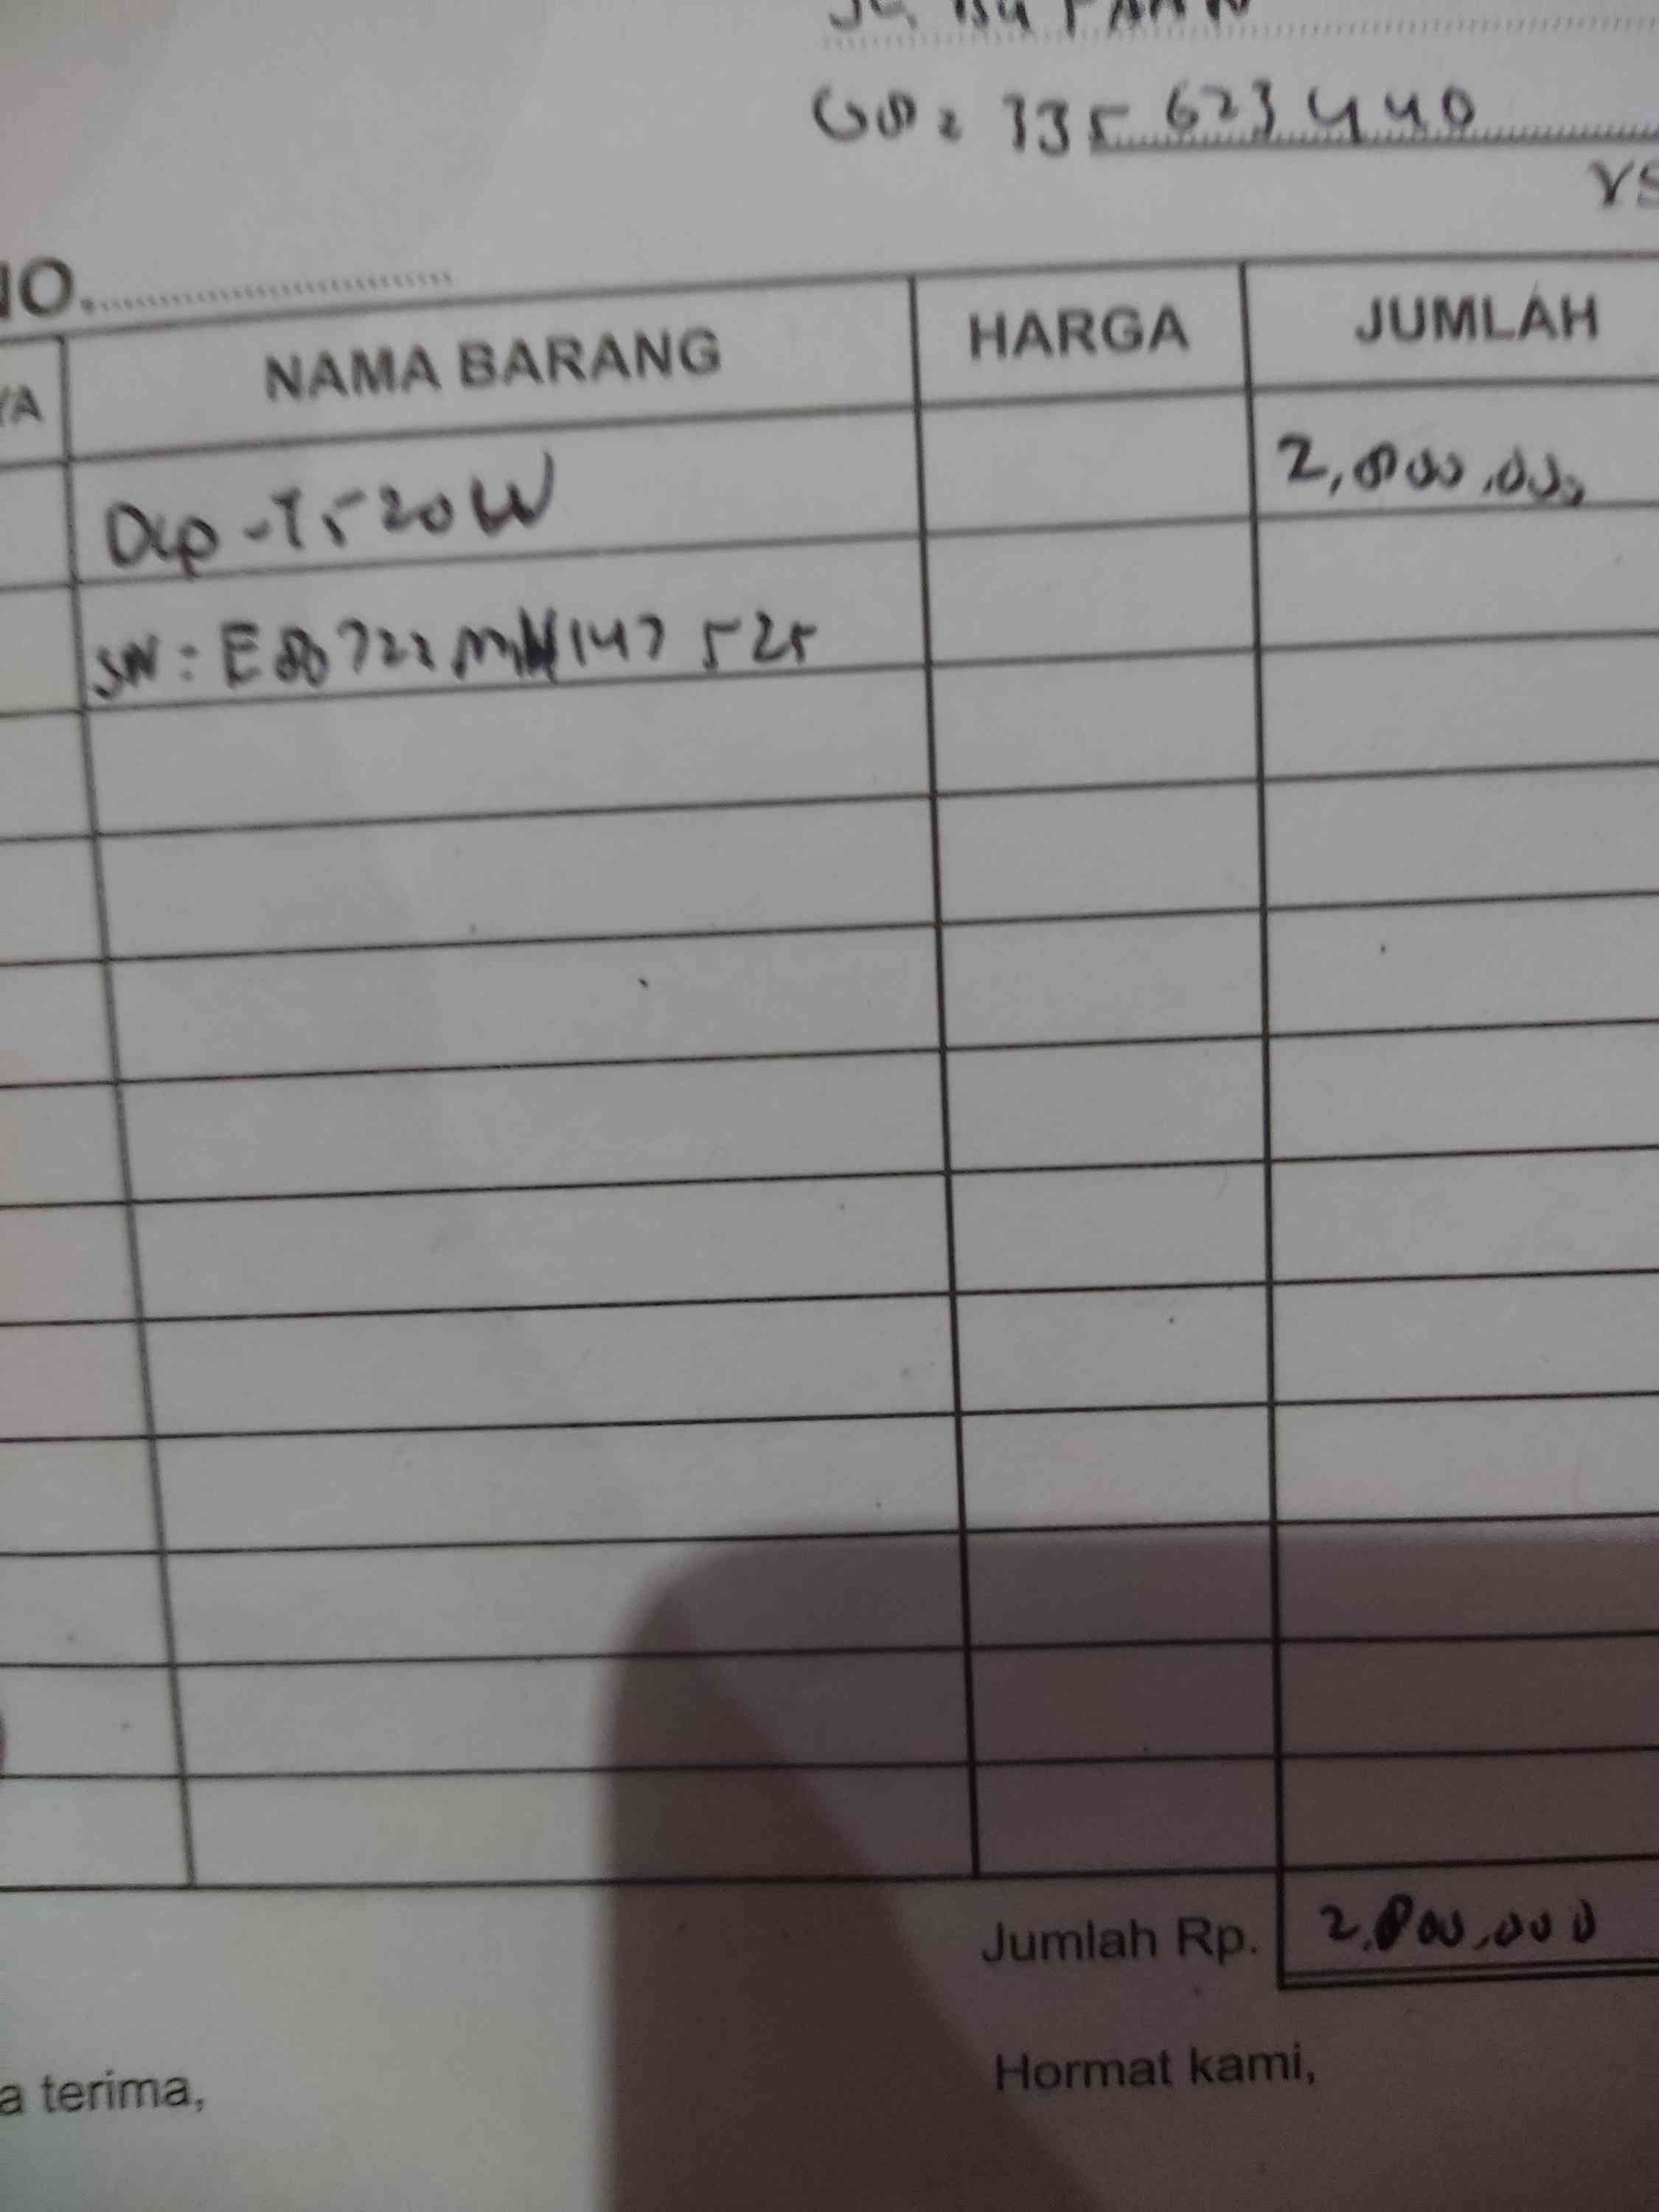 335 623 440
NO.
NAMA BARANG HARGA JUMLAH
YA
Dcp-T520W 2,800.000
SN: E80722M1N147525
Jumlah Rp. 2.800.000
a terima, Hormat kami,